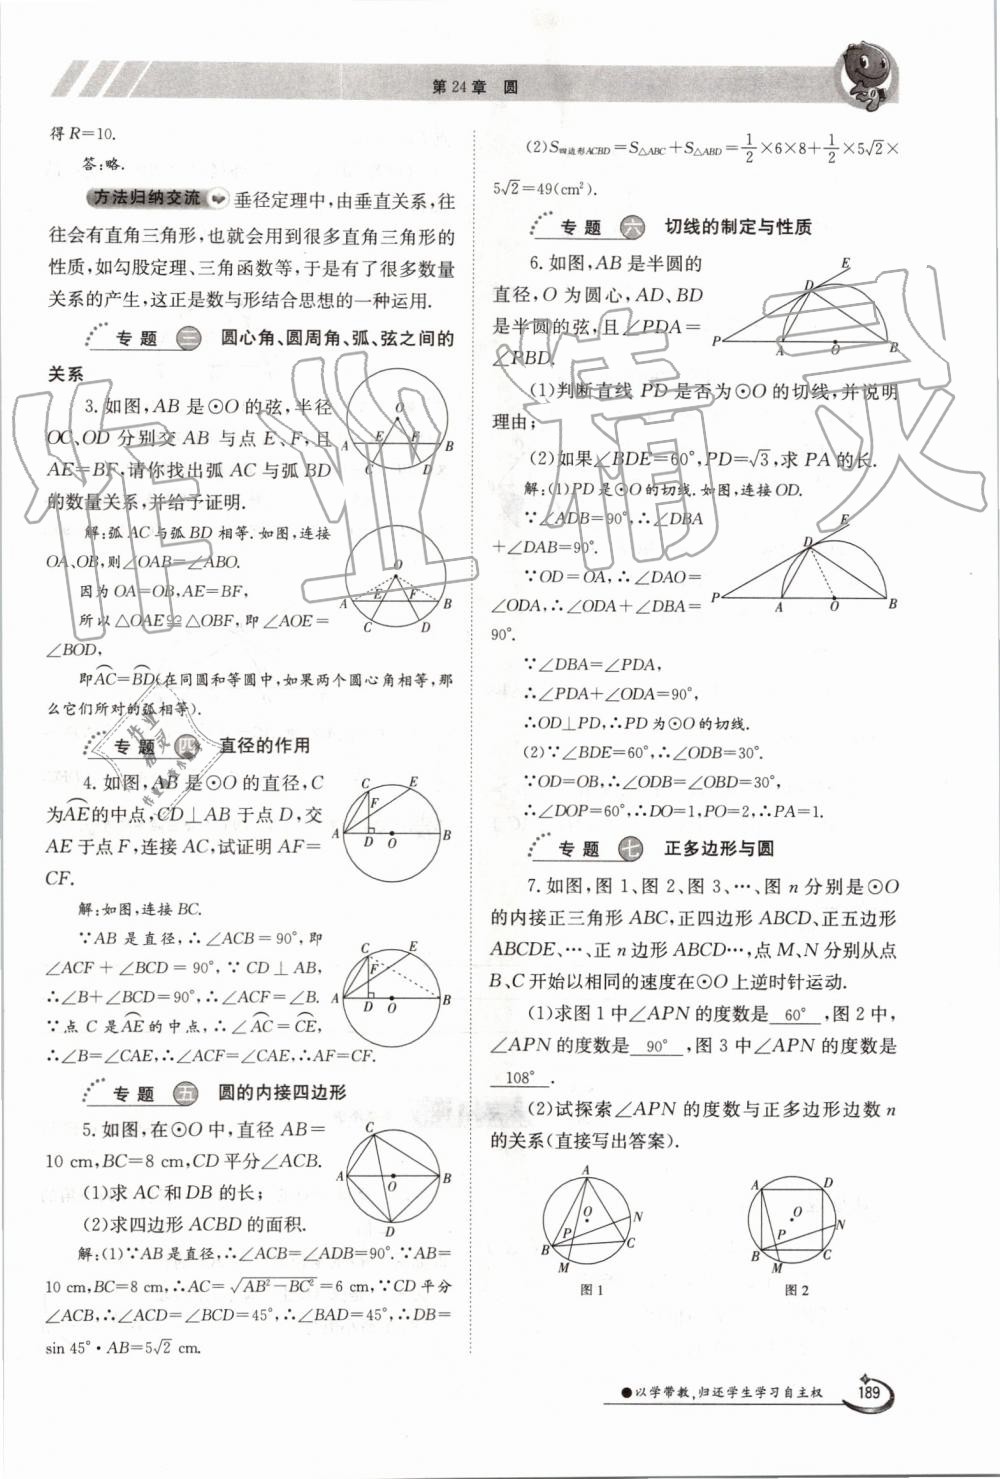 第24章 圆
得R=10.
答:略.
方法归纳交流 垂径定理中,由垂直关系,往
往会有直角三角形,也就会用到很多直角三角形的
性质,如勾股定理、三角函数等,于是有了很多数量
关系的产生,这正是数与形结合思想的一种运用.
专题三 圆心角、圆周角、弧、弦之间的
关系
3.如图,AB是⊙O的弦,半径
OC、OD分别交AB与点E、F,且
AE=BF,请你找出弧AC与弧BD
的数量关系,并给予证明.
解:弧AC与弧BD相等.如图,连接
OA、OB,则∠OAB=∠ABO.
因为OA=OB,AE=BF,
所以△OAE≌△OBF,即∠AOE=
∠BOD,
即AC=BD(在同圆和等圆中,如果两个圆心角相等,那
么它们所对的弧相等).
专题四 直径的作用
4.如图,AB是⊙O的直径,C
为AE的中点,CD⊥AB于点D,交
AE于点F,连接AC,试证明AF=
CF.
解:如图,连接BC.
∵AB是直径,∴∠ACB=90°,即
∠ACF+∠BCD=90°,∵CD⊥AB,
∴∠B+∠BCD=90°,∴∠ACF=∠B.
∵点C是AE的中点,∴∠AC=CE,
∴∠B=∠CAE,∴∠ACF=∠CAE,∴AF=CF.
专题五 圆的内接四边形
5.如图,在⊙O中,直径AB=
10 cm,BC=8 cm,CD平分∠ACB.
(1)求AC和DB的长;
(2)求四边形ACBD的面积.
解:(1)∵AB是直径,∴∠ACB=∠ADB=90°.∵AB=
10 cm,BC=8 cm,∴AC=√(AB²-BC²)=6 cm,∵CD平分
∠ACB,∴∠ACD=∠BCD=45°,∴∠BAD=45°,∴DB=
sin 45°·AB=5√2 cm.
(2)S四边形ACBD=S△ABC+S△ABD=1/2×6×8+1/2×5√2×
5√2=49(cm²).
专题六 切线的制定与性质
6.如图,AB是半圆的
直径,O为圆心,AD、BD
是半圆的弦,且∠PDA=
∠PBD.
(1)判断直线PD是否为⊙O的切线,并说明
理由;
(2)如果∠BDE=60°,PD=√3,求PA的长.
解:(1)PD是⊙O的切线.如图,连接OD.
∵∠ADB=90°,∴∠DBA
+∠DAB=90°.
∵OD=OA,∴∠DAO=
∠ODA,∴∠ODA+∠DBA=
90°.
∵∠DBA=∠PDA,
∴∠PDA+∠ODA=90°,
∴OD⊥PD,∴PD为⊙O的切线.
(2)∵∠BDE=60°,∴∠ODB=30°.
∵OD=OB,∴∠ODB=∠OBD=30°,
∴∠DOP=60°,∴DO=1,PO=2,∴PA=1.
专题七 正多边形与圆
7.如图,图1、图2、图3、…、图n分别是⊙O
的内接正三角形ABC,正四边形ABCD、正五边形
ABCDE、…、正n边形ABCD…,点M、N分别从点
B、C开始以相同的速度在⊙O上逆时针运动.
(1)求图1中∠APN的度数是 60° ,图2中,
∠APN的度数是 90° ,图3中∠APN的度数是
108° .
(2)试探索∠APN的度数与正多边形边数n
的关系(直接写出答案).
图1
图2
●以学带教,归还学生学习自主权
189